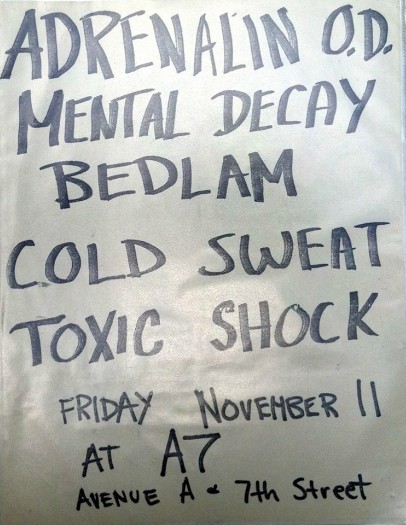 ADRENALIN O.D.
MENTAL DECAY
BEDLAM
COLD SWEAT
TOXIC SHOCK
FRIDAY NOVEMBER 11
AT A7
AVENUE A & 7th Street